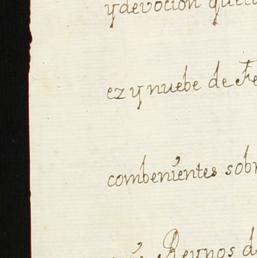 y devocion que
ez y nuebe de Fe
combenientes sobr
Reynos d